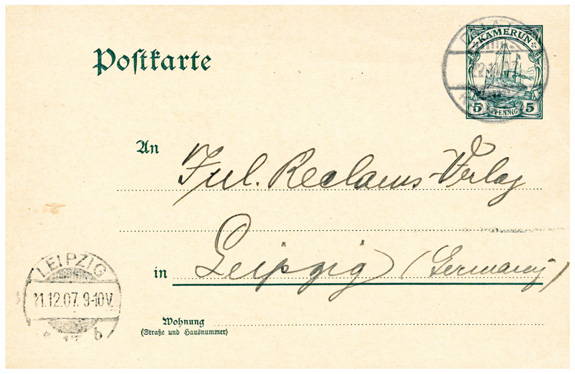 Postkarte
KAMERUN
5 PFENNIG 5
An
Jul. Reclams-Verlag
in Leipzig (Germany)
LEIPZIG
11.12.07. 9-10V.
b
Wohnung
(Straße und Hausnummer)